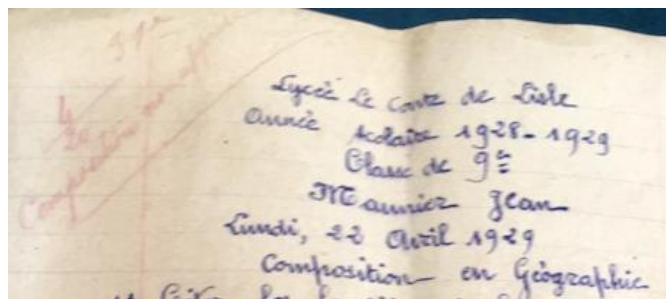 31e
4
20
Composition non apprise
Lycée Le Conte de Lisle
Année scolaire 1928-1929
Classe de 9e
Maunier Jean
Lundi, 22 Avril 1929
Composition en Géographie